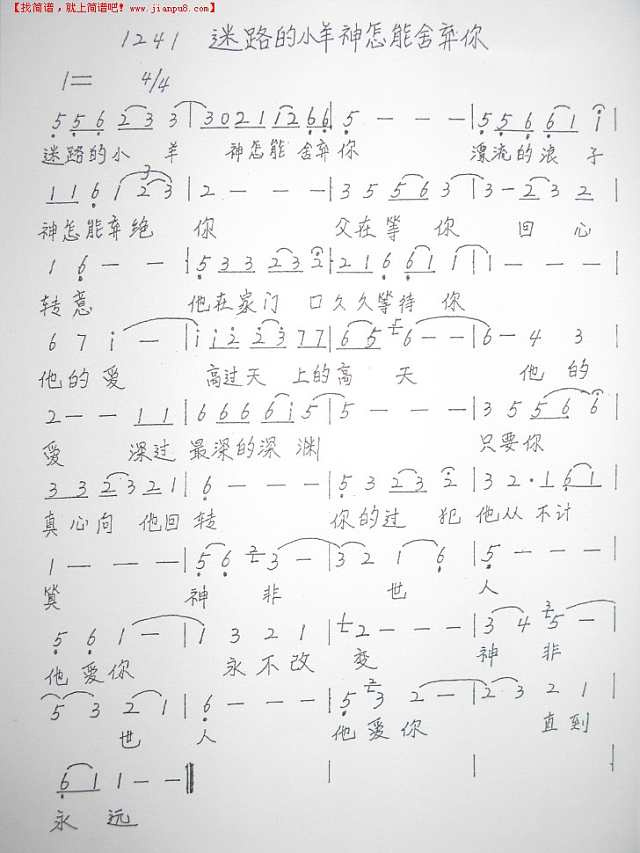 【找简谱，就上简谱吧！www.jianpu8.com】
1241 迷路的小羊神怎能舍弃你
1= 4/4
5 5 6 2 3 3 | 3 0 2 1 1 2 6 6 | 5 - - - | 5 5 6 6 1 i
迷路的小 羊 神怎能 舍弃你 漂流的浪 子
1 1 6 1 2 3 | 2 - - - | 3 5 5 6 3 | 3 - 2 3 2
神怎能弃绝 你 父在等 你 回 心
1 6 - - | 5 3 3 2 3 2 | 2 1 6 6 1 1 | 1 - - -
转意 他在家门 口久久等待 你
6 7 i - | i i 2 2 3 7 7 | 6 5 6 - - | 6 - 4 3
他的爱 高过天 上的高 天 他 的
2 - - 1 1 | 6 6 6 6 i 5 | 5 - - - | 3 5 5 6 6
爱 深过 最深的深 渊 只要你
3 3 2 3 2 1 | 6 - - - | 5 3 2 3 2 | 3 2 · 1 6 1
真心向 他回转 你的过 犯 他从 不计
1 - - - | 5 6 3 - | 3 2 1 6 | 5 - - -
算 神 非 世 人
5 6 1 - | 1 3 2 1 | 2 - - - | 3 4 5 -
他爱你 永不改 变 神 非
5 3 2 1 | 6 - - - | 5 3 2 - | 2 3 2 1
世 人 他爱你 直到
6 1 1 - - ‖
永 远